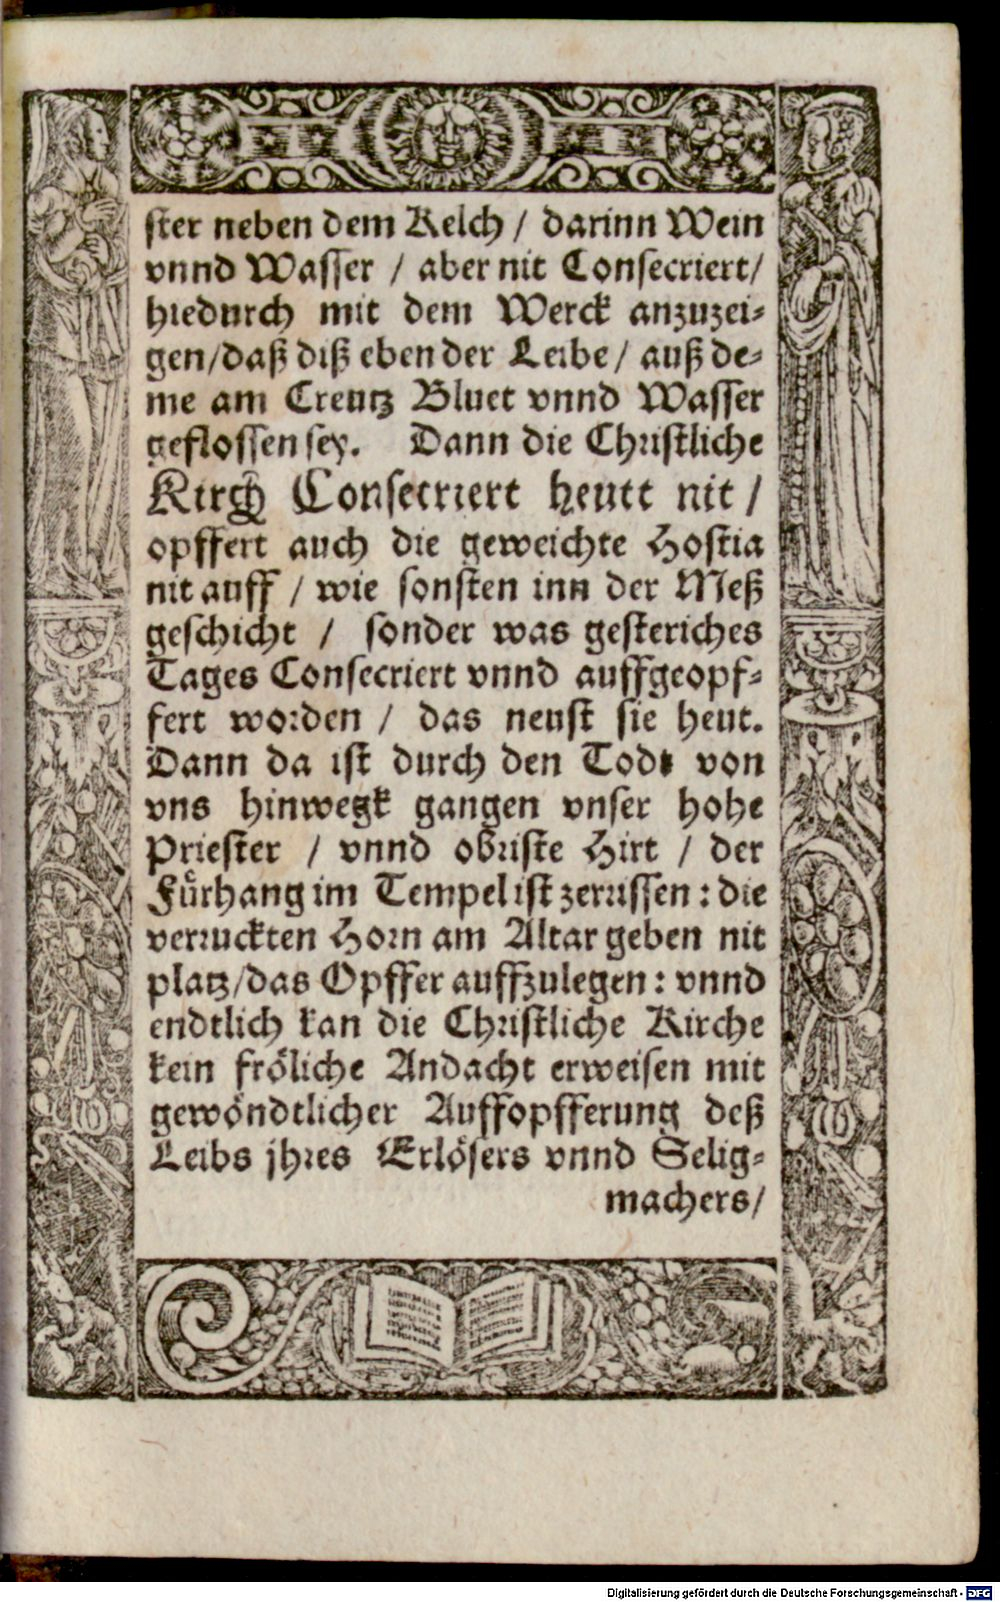 ster neben dem Kelch / darinn Wein
vnnd Wasser / aber nit Consecriert/
hiedurch mit dem Werck anzuzei-
gen/daß diß eben der Leibe / auß de-
me am Creutz Bluet vnnd Wasser
geflossen sey. Dann die Christliche
Kirch Consecriert heutt nit /
opffert auch die geweichte Hostia
nit auff / wie sonsten inn der Meß
geschicht / sonder was gesteriches
Tages Consecriert vnnd auffgeopf-
fert worden / das neust sie heut.
Dann da ist durch den Todt von
vns hinwegk gangen vnser hohe
Priester / vnnd obriste Hirt / der
Fürhang im Tempel ist zerrissen : die
verruckten Horn am Altar geben nit
platz/das Opffer auffzulegen : vnnd
endtlich kan die Christliche Kirche
kein fröliche Andacht erweisen mit
gewöndtlicher Auffopfferung deß
Leibs jhres Erlösers vnnd Selig-
machers/
Digitalisierung gefördert durch die Deutsche Forschungsgemeinschaft - DFG